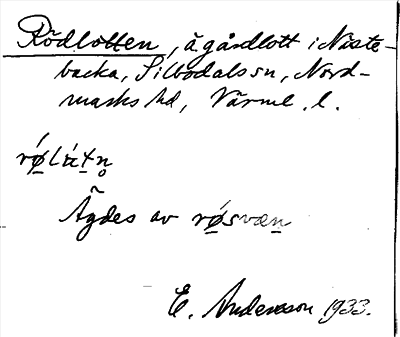 Rödlotten, ägårdlott i Näste-
backa, Silbodals sn, Nord-
marks hd, Värml. l.
Ägdes av
E. Andersson 1933.